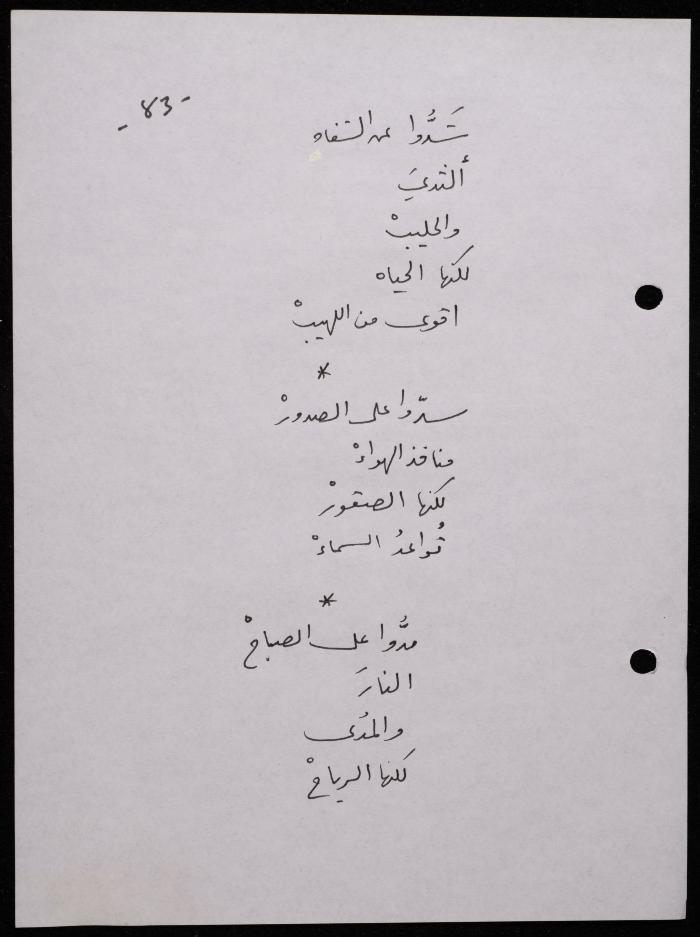 -83-
شَدُّوا عن الشفاه
ألثديَ
والحليبْ
لكنها الحياه
اقوى من اللهيبْ
*
سدّوا على الصدورْ
منافذ الهواءْ
لكنها الصقورْ
تُواعدُ السماءْ
*
مدُّوا على الصباحْ
النارَ
والمدُى
لكنها الرياحْ